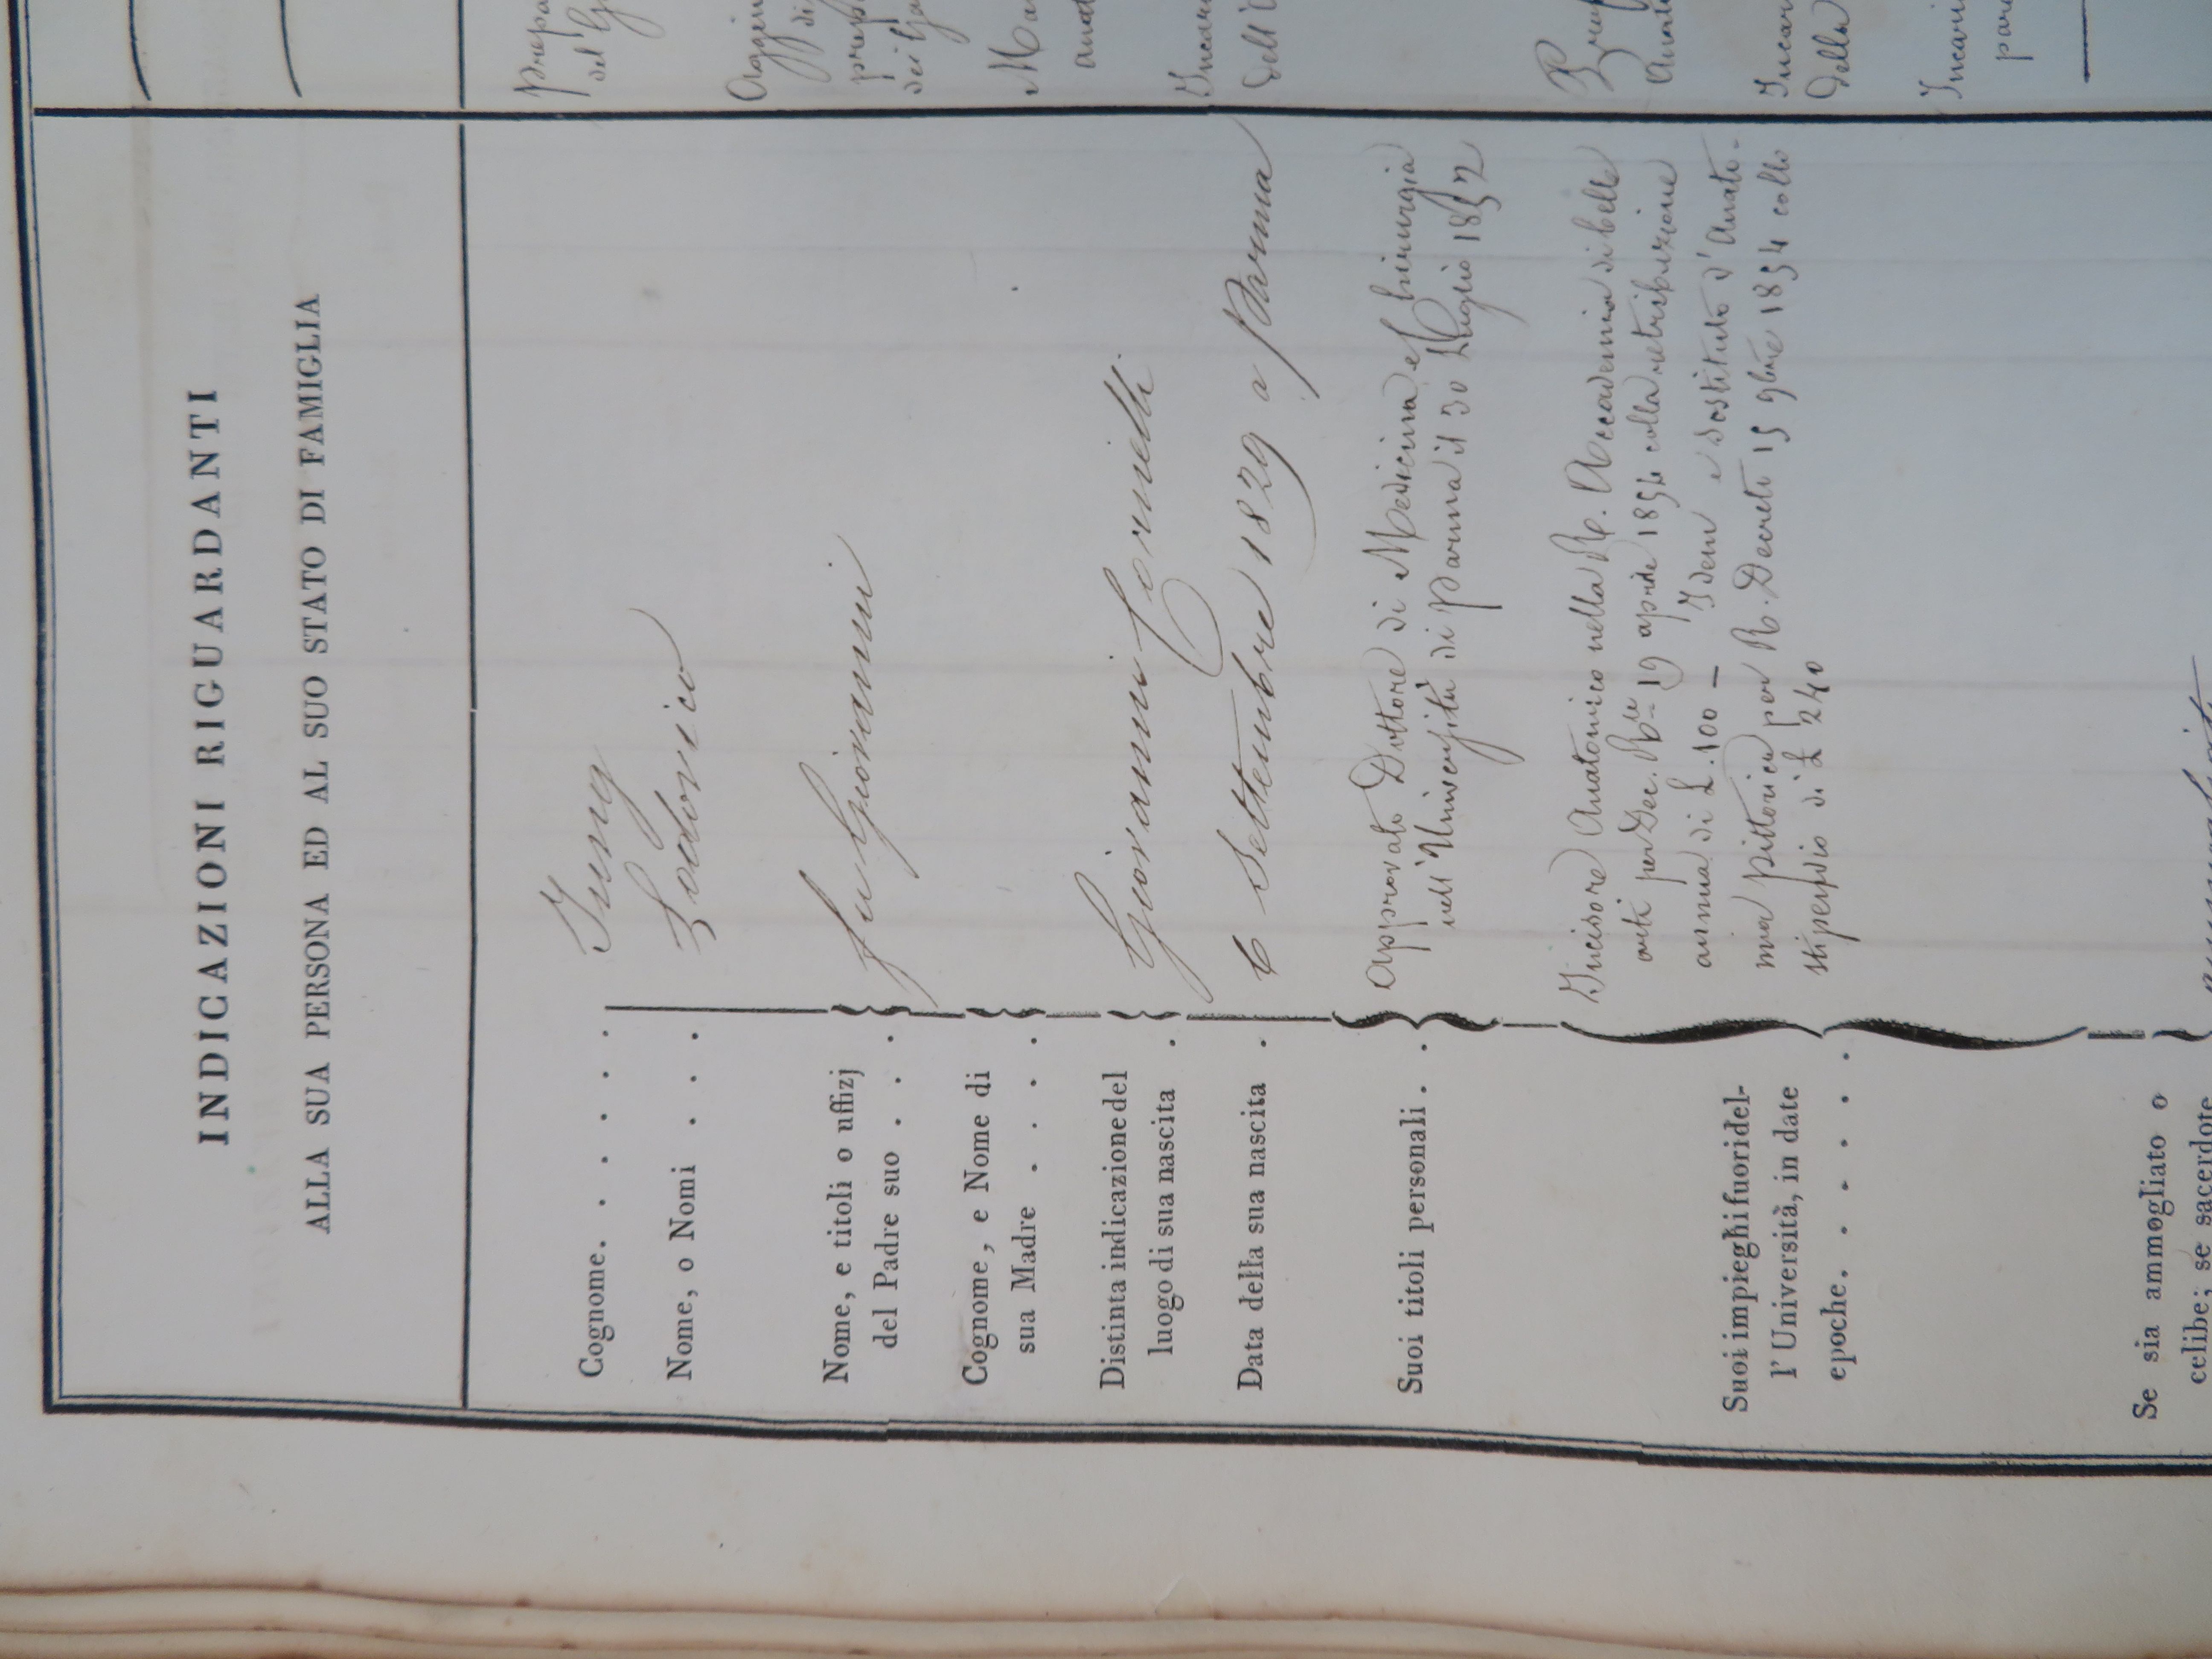 INDICAZIONI RIGUARDANTI
ALLA SUA PERSONA ED AL SUO STATO DI FAMIGLIA
Cognome. . . . . . Jung
Nome, o Nomi . . . Lodovico
Nome, e titoli o uffizj
del Padre suo . . . fu Giovanni
Cognome, e Nome di
sua Madre . . . .
Distinta indicazione del
luogo di sua nascita . Giovanni Cornelli
Data della sua nascita . 6 Settembre 1829 a Parma
Suoi titoli personali . .
Approvato Dottore di Medicina e Chirurgia
nell'Università di Parma il 30 Luglio 1852
Suoi impieghi fuori del-
l'Università, in date
epoche. . . . . .
Incisore Anatomico nella R. Accademia di belle
arti per Dec. Rle 19 aprile 1854 colla retribuzione
annua di L. 100 — Idem e sostituto d'Anato-
mia pittorica per R. Decreto 15 9bre 1854 collo
stipendio di £ 240
Se sia ammogliato o
celibe; se sacerdote
prepa
del G
Aggiun
di
prep
dei Ga
Ma
anat
Incar
dell'
Prof
Anat
Incar
della
Incari
par